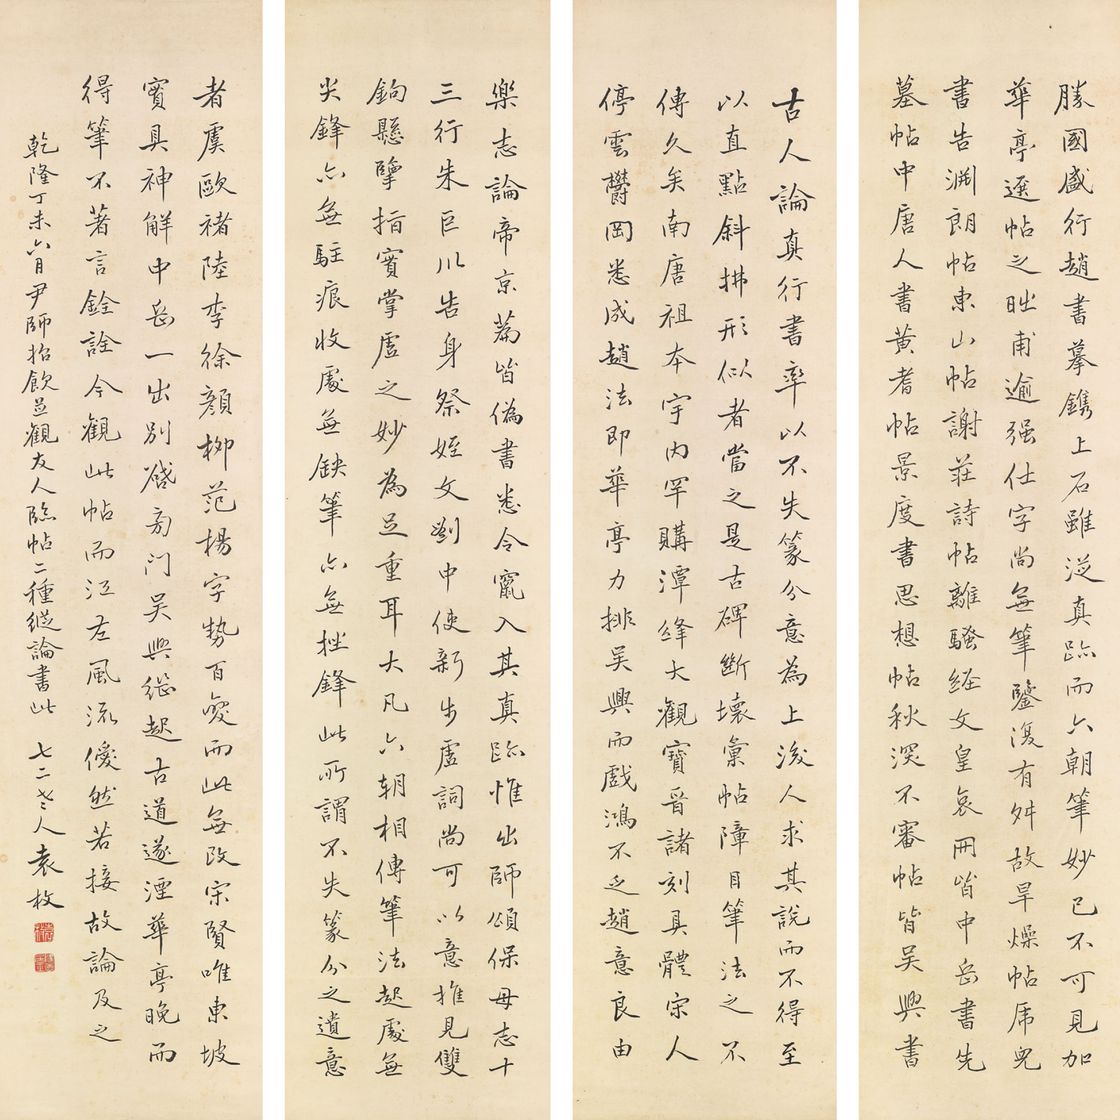 勝國盛行趙書摹鐫上石雖從真跡而六朝筆妙已不可見加
華亭逛帖之昢甫逾强仕字尚無筆鑒復有舛故旱燥帖虎兒
書告淵朗帖東山帖謝莊詩帖離騷經文皇哀冊皆中岳書先
墓帖中唐人書黃耆帖景度書思想帖秋深不審帖皆吳興書
古人論真行書率以不失篆分意為上後人求其說而不得至
以直點斜拂形似者當之是古碑斷壞彙帖障目筆法之不
傳久矣南唐祖本宇內罕購潭絳大觀寶晉諸刻具體宋人
停雲欝岡悉成趙法即華亭力排吳興而戲鴻不乏趙意良由
樂志論帝京萹皆偽書悉令竄入其真跡惟出師頌保母志十
三行朱巨川告身祭姪文劉中使新步虛詞尚可以意推見雙
鉤懸擘指實掌虛之妙為足重耳大凡六朝相傳筆法起處無
尖鋒亦無駐痕收處無缺筆亦無挫鋒此所謂不失篆分之遺意
者虞歐褚陸李徐顏柳范楊字勢百變而此無改宋賢唯東坡
實具神解中岳一出別啟旁門吳興繼起古道遂湮華亭晚而
得筆不著言銓詮今觀此帖而江左風流僾然若接故論及之
乾隆丁未六月尹師招飲並觀友人臨帖二種縱論書此 七二老人袁枚